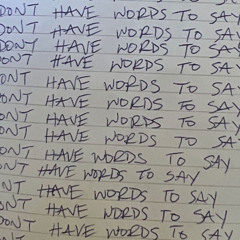 DONT HAVE WORDS TO SAY
DONT HAVE WORDS TO SAY
DONT HAVE WORDS TO SAY
DONT HAVE WORDS TO SAY
ONT HAVE WORDS TO SAY
ONT HAVE WORDS TO SAY
ONT HAVE WORDS TO SAY
ONT HAVE WORDS TO SAY
ONT HAVE WORDS TO SAY
NT HAVE WORDS TO SAY
NT HAVE WORDS TO SAY
ONT HAVE WORDS TO SAY
ONT HAVE WORDS TO SAY